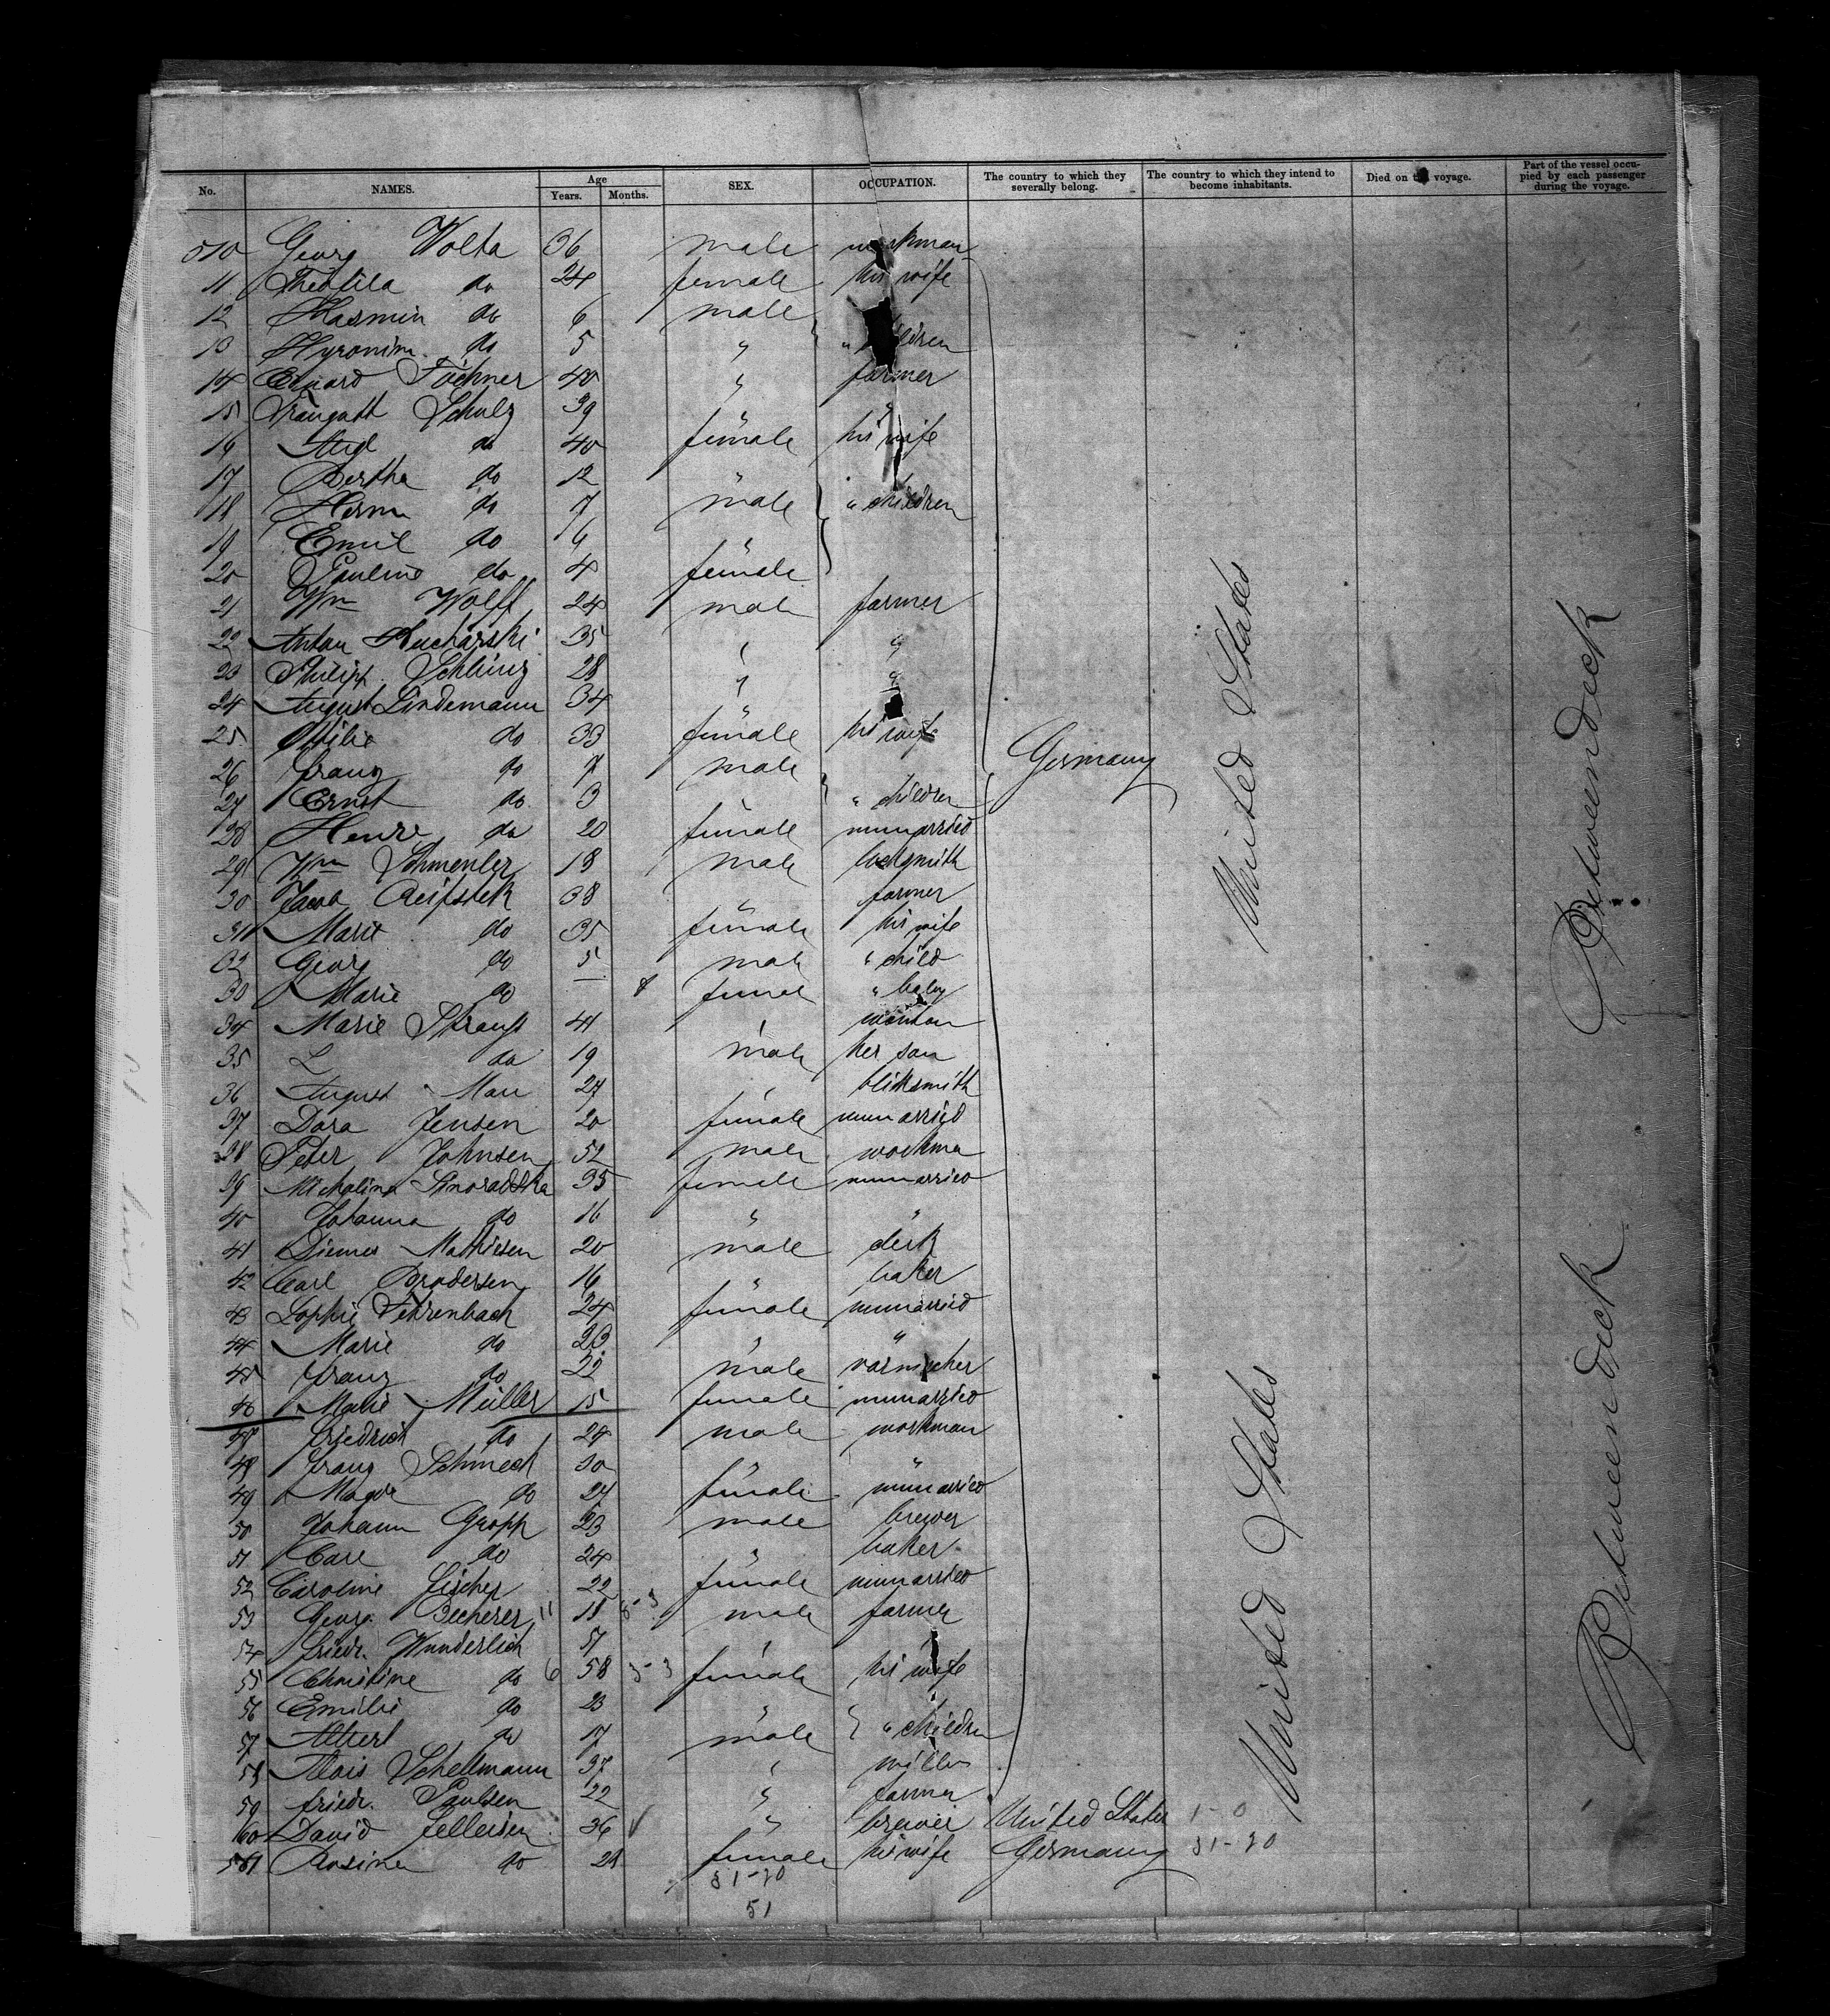 No. NAMES. Age Years. Months. SEX. OCCUPATION. The country to which they severally belong. The country to which they intend to become inhabitants. Died on the voyage. Part of the vessel occupied by each passenger during the voyage.
510 Georg Wolta 36 male workman
11 Theofila do 24 female his wife
12 Kasmin do 6 male
13 Hyronim do 5 " " children
14 Eduard Fächner 40 " farmer
15 Traugott Schulz 39 " "
16 Aug do 40 female his wife
17 Bertha do 12 "
18 Herm do 7 male " children
19 Emil do 6 "
20 Pauline do 4 female
21 Wm Wolff 24 male farmer
22 Anton Kucharski 35 " "
23 Philipp Schling 28 " "
24 August Lindemann 34 "
25 Ottilie do 33 female his wife
26 Franz do 7 male
27 Ernst do 3 " " children
28 Henre do 20 female unmarried
29 Wm Schmenler 18 male locksmith
30 Jacob 38 " farmer
31 Marie do 35 female his wife
32 Georg do 5 male " child
33 Marie do — 8 female " baby
34 Marie Strauss 41 " woman
35 L do 19 male her son
36 August Mau 27 " blksmith
37 Dora Jensen 20 female unmarried
38 Peter Johnsen 52 male workma
39 Michalina 35 female unmarried
40 Johanna do 16 " "
41 Diemer Mathiesen 20 male clerk
42 Carl Brodersen 16 " baker
43 Sophie Fehrenbach 24 female unmarried
44 Marie do 23 " "
45 Franz do 22 male varnischer
46 Marie Müller 15 female unmarried
47 Friedrich do 24 male workman
48 Franz Schmech 30 " "
49 Magda do 27 female unmarried
50 Johann Gropp 23 male brewer
51 Carl do 24 " baker
52 Caroline Fischer 22 female unmarried
53 Georg Becherer 11 18 8-3 male farmer
54 Friedr. Wunderlich 51 "
55 Christine do 6 58 3-3 female his wife
56 Emilie do 23 "
57 Albert do 17 male " children
58 Alois Schellmann 37 " miller
59 Friedr. Paulsen 22 " farmer
60 David Fellersen 36 " brewer United States 1-0
561 Rosine do 28 female his wife Germany 31-20
31-20
51
Germany
United States
United States
Betweendeck
Betweendeck